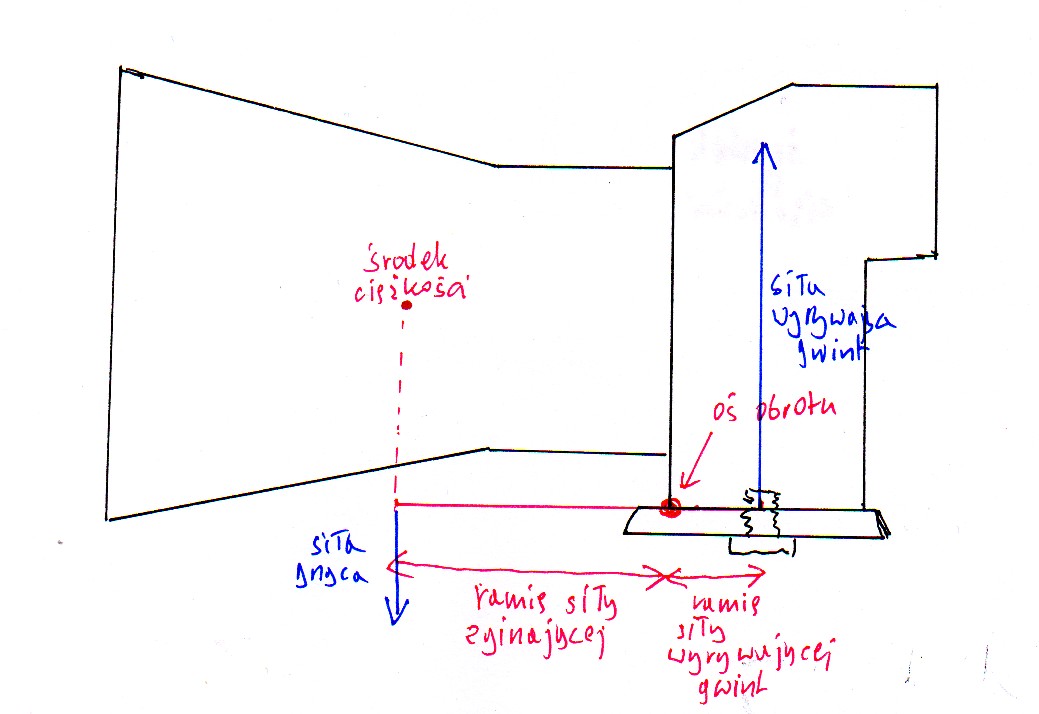 środek
ciężkości
siła
wyrywająca
gwint
oś obrotu
siła
gnąca
ramię siły
zginającej
ramię
siły
wyrywującej
gwint